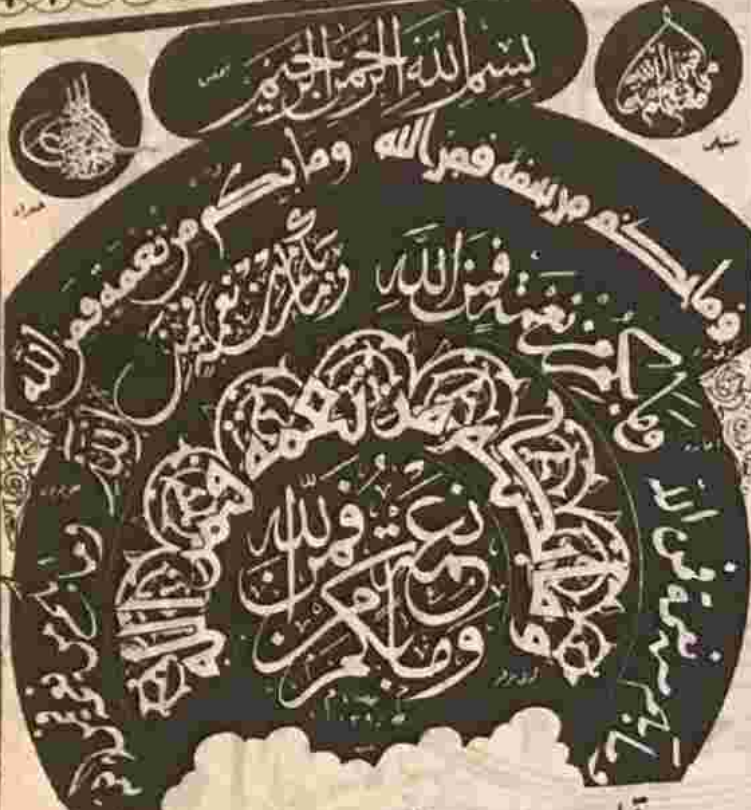 بسم الله الرحمن الرحيم
وما بكم من نعمة فمن الله
وما بكم من نعمة فمن الله
وما بكم من نعمة فمن الله
وما بكم من نعمة فمن الله
وما بكم من نعمة فمن الله
وما بكم من نعمة فمن الله
وما بكم من نعمة فمن الله
وما بكم من نعمة فمن الله